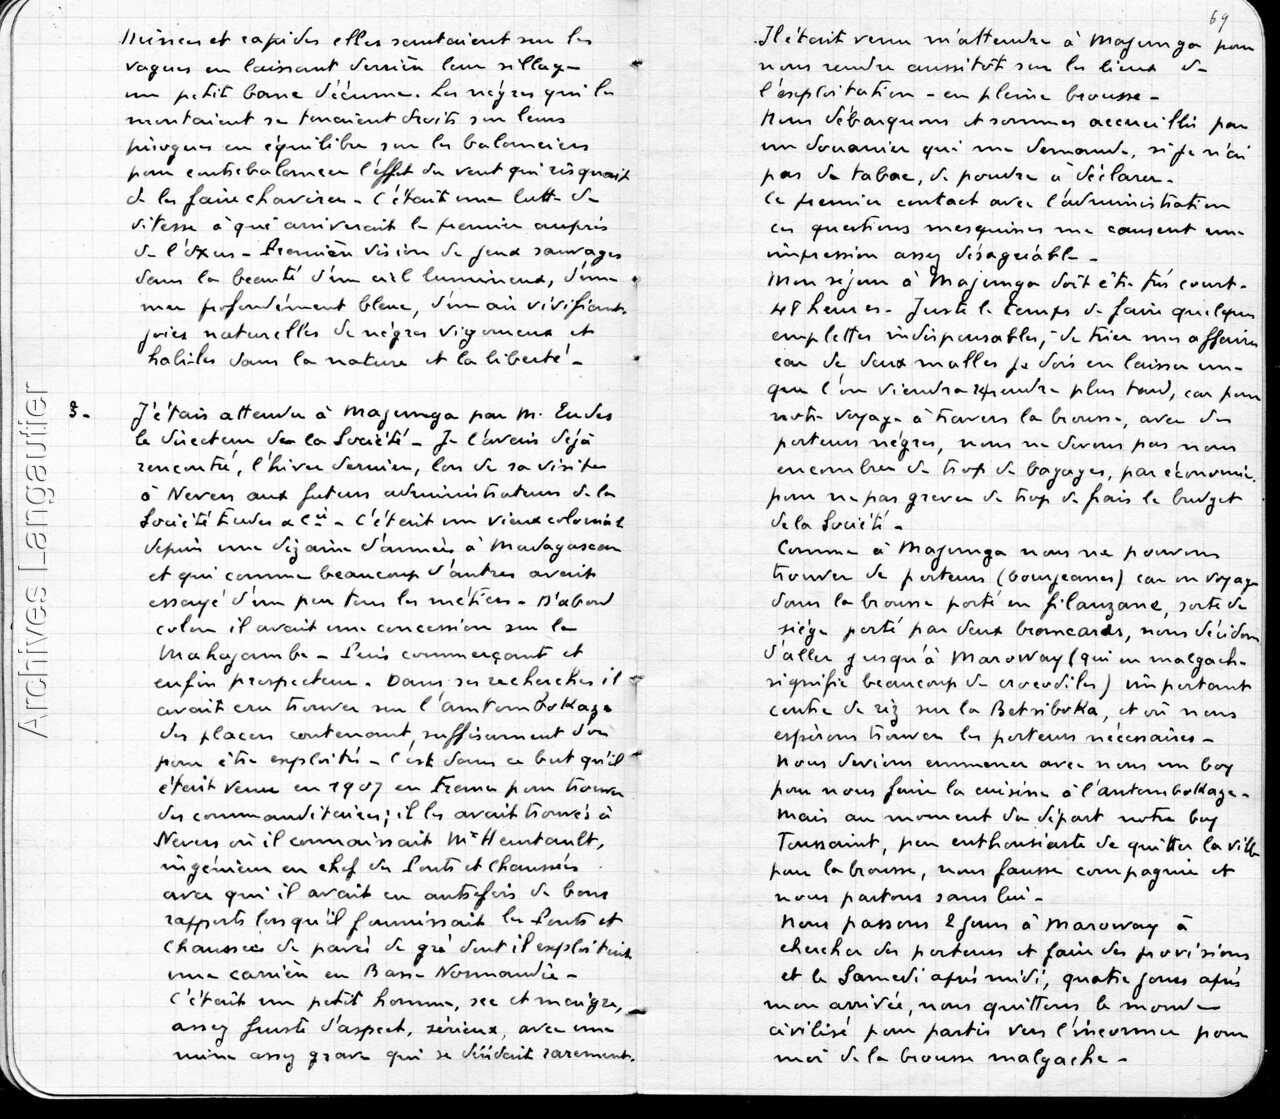 Minces et rapides elles sautaient sur les
vagues en laissant derrière leur sillage
un petit banc d'écume. Les nègres qui les
montaient se tenaient droits sur leurs
pirogues en équilibre sur les balanciers
pour contrebalancer l'effet du vent qui risquait
de les faire chavirer - C'était une lutte de
vitesse à qui arriverait le premier auprès
de l'Oxus - Première vision de jeux sauvages
dans la beauté d'un ciel lumineux, d'une
mer profondément bleue, d'un air vivifiant,
joies naturelles de nègres vigoureux et
habiles dans la nature et la liberté -
3 - J'étais attendu à Majunga par M. Eudes
le directeur de la Société - Je l'avais déjà
rencontré, l'hiver dernier, lors de sa visite
à Nevers aux futurs administrateurs de la
Société Eudes & Cie - C'était un vieux colonial
depuis une dizaine d'années à Madagascar
et qui comme beaucoup d'autres avait
essayé d'un peu tous les métiers - D'abord
colon il avait une concession sur la
Mahajamba - Puis commerçant et
enfin prospecteur - Dans ses recherches il
avait cru trouver sur l'Antambokazo
des placers contenant suffisamment d'or
pour être exploités - C'est dans ce but qu'il
était venu en 1907 en France pour trouver
des commanditaires ; il les avait trouvés à
Nevers où il connaissait Mr Heurtault,
ingénieur en chef des Ponts et Chaussées
avec qui il avait eu autrefois de bons
rapports lorsqu'il fournissait les Ponts et
Chaussées de pavés de gré dont il exploitait
une carrière en Basse Normandie -
C'était un petit homme, sec et maigre,
assez fruste d'aspect, sérieux, avec une
mine assez grave qui se déridait rarement.
69
Il était venu m'attendre à Majunga pour
nous rendre aussitôt sur les lieux de
l'exploitation - en pleine brousse -
Nous débarquons et sommes accueillis par
un douanier qui me demande, si je n'ai
pas de tabac, de poudre à déclarer -
Ce premier contact avec l'administration
ces questions mesquines me causent une
impression assez désagréable -
Mon séjour à Majunga doit être très court -
48 heures - Juste le temps de faire quelques
emplettes indispensables, de trier mes affaires
car de deux malles je dois en laisser une
que l'on viendra reprendre plus tard, car pour
notre voyage à travers la brousse, avec des
porteurs nègres, nous ne devons pas nous
encombrer de trop de bagages, par économie
pour ne pas grever de trop de frais le budget
de la Société -
Comme à Majunga nous ne pouvons
trouver de porteurs (bourjeanes) car on voyage
dans la brousse porté en filanzane, sorte de
siège porté par deux brancards, nous décidons
d'aller jusqu'à Marovay (qui en malgache
signifie beaucoup de crocodiles) important
centre de riz sur la Betsiboka, et où nous
espérons trouver les porteurs nécessaires -
Nous devions emmener avec nous un boy
pour nous faire la cuisine à l'antambokazo -
Mais au moment du départ notre boy
Toussaint, peu enthousiaste de quitter la ville
pour la brousse, nous fausse compagnie et
nous partons sans lui -
Nous passons 2 jours à Marovay à
chercher des porteurs et faire des provisions
et le Samedi après midi, quatre jours après
mon arrivée, nous quittons le monde
civilisé pour partir vers l'inconnu pour
moi de la brousse malgache -
Archives Langautier